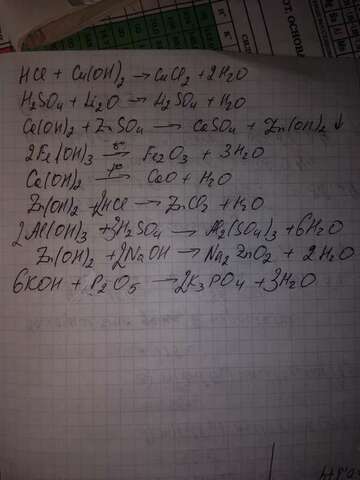 HCl + Cu(OH)₂ → CuCl₂ + 2H₂O
H₂SO₄ + Li₂O → Li₂SO₄ + H₂O
Ca(OH)₂ + ZnSO₄ → CaSO₄ + Zn(OH)₂↓
2Fe(OH)₃ →t° Fe₂O₃ + 3H₂O
Ca(OH)₂ →t° CaO + H₂O
Zn(OH)₂ + 2HCl → ZnCl₂ + H₂O
2Al(OH)₃ + 3H₂SO₄ → Al₂(SO₄)₃ + 6H₂O
Zn(OH)₂ + 2NaOH → Na₂ZnO₂ + 2H₂O
6KOH + P₂O₅ → 2K₃PO₄ + 3H₂O